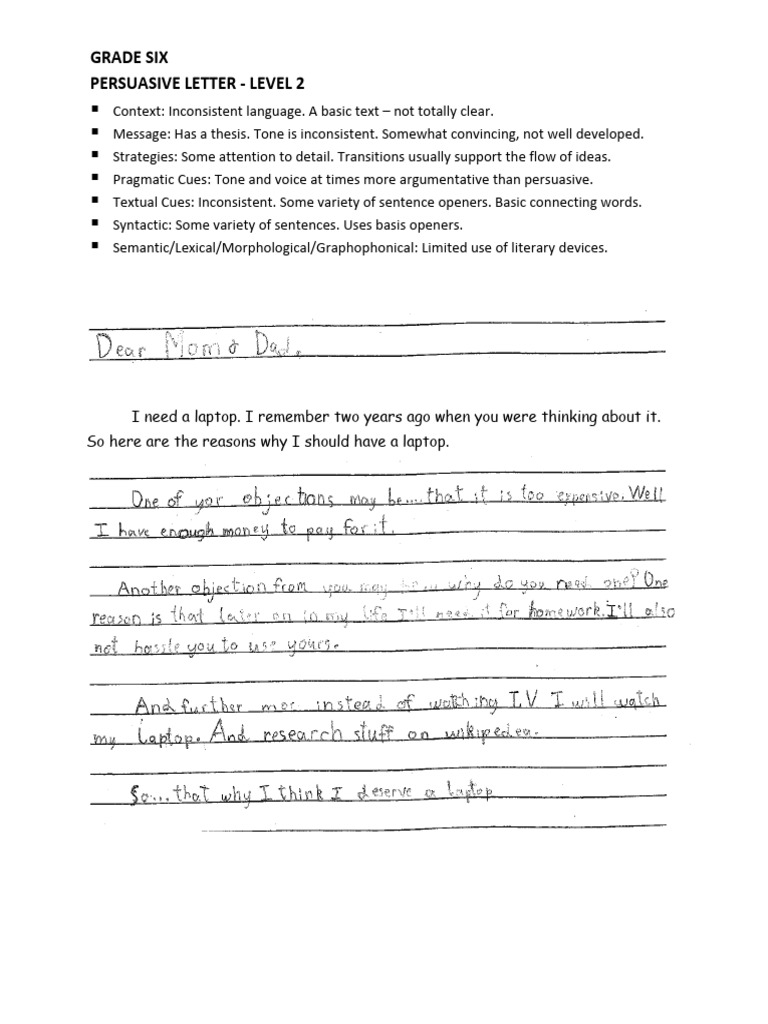 GRADE SIX
PERSUASIVE LETTER - LEVEL 2
▪ Context: Inconsistent language. A basic text – not totally clear.
▪ Message: Has a thesis. Tone is inconsistent. Somewhat convincing, not well developed.
▪ Strategies: Some attention to detail. Transitions usually support the flow of ideas.
▪ Pragmatic Cues: Tone and voice at times more argumentative than persuasive.
▪ Textual Cues: Inconsistent. Some variety of sentence openers. Basic connecting words.
▪ Syntactic: Some variety of sentences. Uses basis openers.
▪ Semantic/Lexical/Morphological/Graphophonical: Limited use of literary devices.
Dear Mom & Dad,
I need a laptop. I remember two years ago when you were thinking about it.
So here are the reasons why I should have a laptop.
One of yor objections may be... that it is too expensive. Well
I have enough money to pay for it.
Another objection from you may be... why do you need one? One
reason is that later on in my life I'll need it for homework. I'll also
not hassle you to use yours.
And further mor instead of watching T.V I will watch
my laptop. And research stuff on wikipedea.
So... that why I think I deserve a laptop